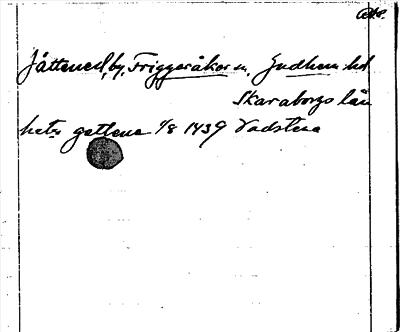 Jättened, by, Friggeråker sn, Gudhem hd
Skaraborgs län
gettene 1/8 1439 Vadstena